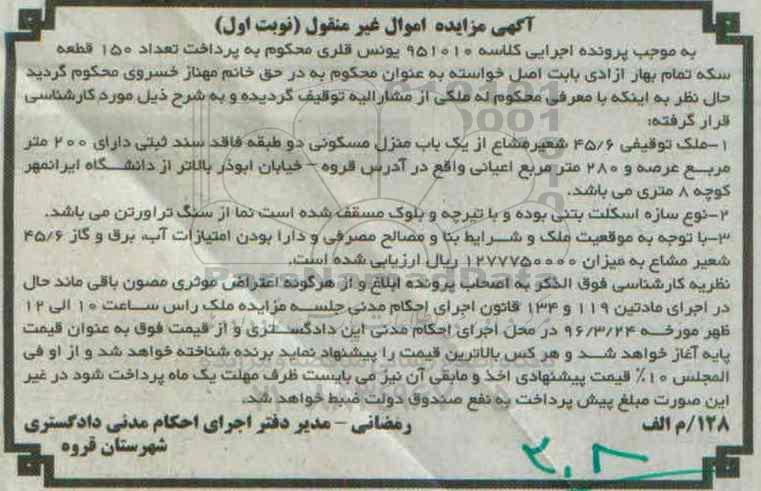 آگهی مزایده اموال غیر منقول (نوبت اول)
به موجب پرونده اجرایی کلاسه ۹۵۱۰۱۰ یونس قلری محکوم به پرداخت تعداد ۱۵۰ قطعه
سکه تمام بهار ازادی بابت اصل خواسته به عنوان محکوم به در حق خانم مهناز خسروی محکوم گردید
حال نظر به اینکه با معرفی محکوم له ملکی از مشارالیه توقیف گردیده و به شرح ذیل مورد کارشناسی
قرار گرفته:
۱-ملک توقیفی ۴۵/۶ شعیرمشاع از یک باب منزل مسکونی دو طبقه فاقد سند ثبتی دارای ۲۰۰ متر
مربع عرصه و ۲۸۰ متر مربع اعیانی واقع در آدرس قروه – خیابان ابوذر بالاتر از دانشگاه ایرانمهر
کوچه ۸ متری می باشد.
۲-نوع سازه اسکلت بتنی بوده و با تیرچه و بلوک مسقف شده است نما از سنگ تراورتن می باشد.
۳-با توجه به موقعیت ملک و شرایط بنا و مصالح مصرفی و دارا بودن امتیازات آب، برق و گاز ۴۵/۶
شعیر مشاع به میزان ۱۲۷۷۷۵۰۰۰۰ ریال ارزیابی شده است.
نظریه کارشناسی فوق الذکر به اصحاب پرونده ابلاغ و از هرگونه اعتراض موثری مصون باقی ماند حال
در اجرای مادتین ۱۱۹ و ۱۳۴ قانون اجرای احکام مدنی جلسه مزایده ملک راس ساعت ۱۰ الی ۱۲
ظهر مورخه ۹۶/۳/۲۴ در محل اجرای احکام مدنی این دادگستری و از قیمت فوق به عنوان قیمت
پایه آغاز خواهد شد و هر کس بالاترین قیمت را پیشنهاد نماید برنده شناخته خواهد شد و از او فی
المجلس ۱۰٪ قیمت پیشنهادی اخذ و مابقی آن نیز می بایست ظرف مهلت یک ماه پرداخت شود در غیر
این صورت مبلغ پیش پرداخت به نفع صندوق دولت ضبط خواهد شد.
۱۲۸/م الف رمضانی – مدیر دفتر اجرای احکام مدنی دادگستری
شهرستان قروه
ParsNamadData